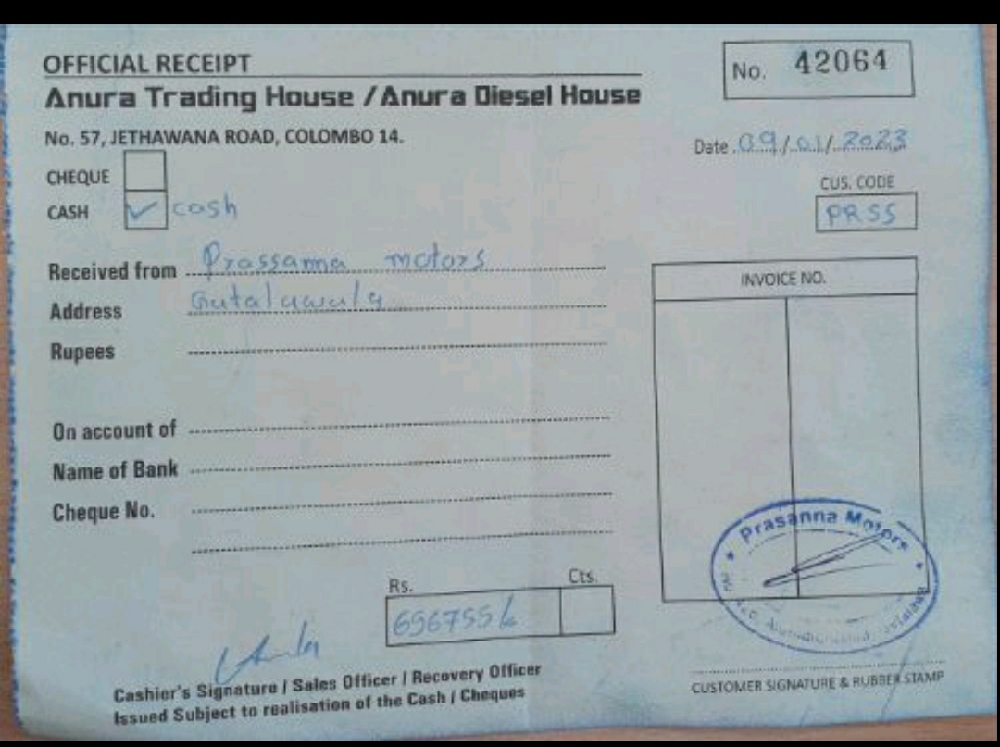 OFFICIAL RECEIPT
No. 42064
Anura Trading House / Anura Diesel House
No. 57, JETHAWANA ROAD, COLOMBO 14.
Date 09/01/2023
CHEQUE
CUS. CODE
CASH ✓ cash
PRSS
Received from Prassanna motors
INVOICE NO.
Address
Rupees
On account of
Name of Bank
Cheque No.
Prasanna Motors
Rs. Cts.
Cashier's Signature / Sales Officer / Recovery Officer
Issued Subject to realisation of the Cash / Cheques
CUSTOMER SIGNATURE & RUBBER STAMP